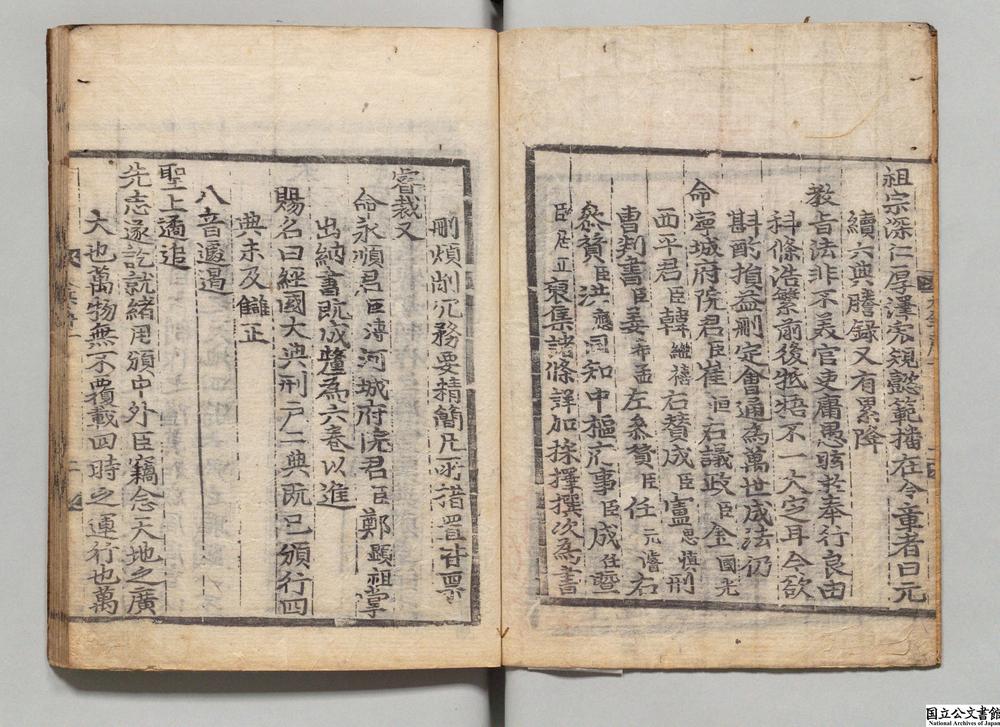 祖宗深仁厚澤宏規懿範播在令章者曰元
續六典謄録又有累降
教旨法非不美官吏庸愚眩於奉行良由
科條浩繁前後牴牾不一大定耳今欲
斟酌損益刪定會通為萬世成法仍
命寧城府院君臣崔恒右議政臣金國光
西平君臣韓繼禧右贊成臣盧思慎刑
曹判書臣姜希孟左參贊臣任元濬右
參贊臣洪應同知中樞府事臣成任暨
臣居正裒集諸條詳加採擇撰次為書
刪煩削冗務要精簡凡所措置皆稟
睿裁又
命永順君臣溥河城府院君臣鄭顯祖掌
出納書既成釐為六卷以進
賜名曰經國大典刑戶二典既已頒行四
典未及讎正
八音遽遏
聖上遹追
先志遂訖就緒用頒中外臣竊念天地之廣
大也萬物無不覆載四時之運行也萬
国立公文書館
National Archives of Japan